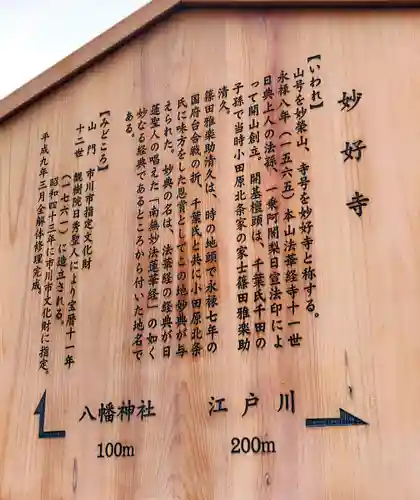 妙好寺
【いわれ】
山号を妙榮山、寺号を妙好寺と称する。
永禄八年(一五六五)本山法華経寺十一世
日典上人の法孫、一乗阿闍梨日宣法印によ
って開山創立。開基檀頭は、千葉氏千田の
子孫で当時小田原北条家の家士篠田雅楽助
清久。
篠田雅楽助清久は、時の地頭で永禄七年の
国府台合戦の折、千葉氏と共に小田原北条
氏に味方をした恩賞としてこの地妙典が与
えられた。妙典の名は、法華経の経典が日
蓮聖人の唱えた「南無妙法蓮華経」の如く
妙なる経典であるところから付いた地名で
ある。
【みどころ】
山門 市川市指定文化財
十二世 観樹院日秀聖人により宝暦十一年
(一七六一)に造立される。
昭和四十三年に市川市文化財に指定。
平成九年三月全解体修理完成。
八幡神社
100m
江戸川
200m